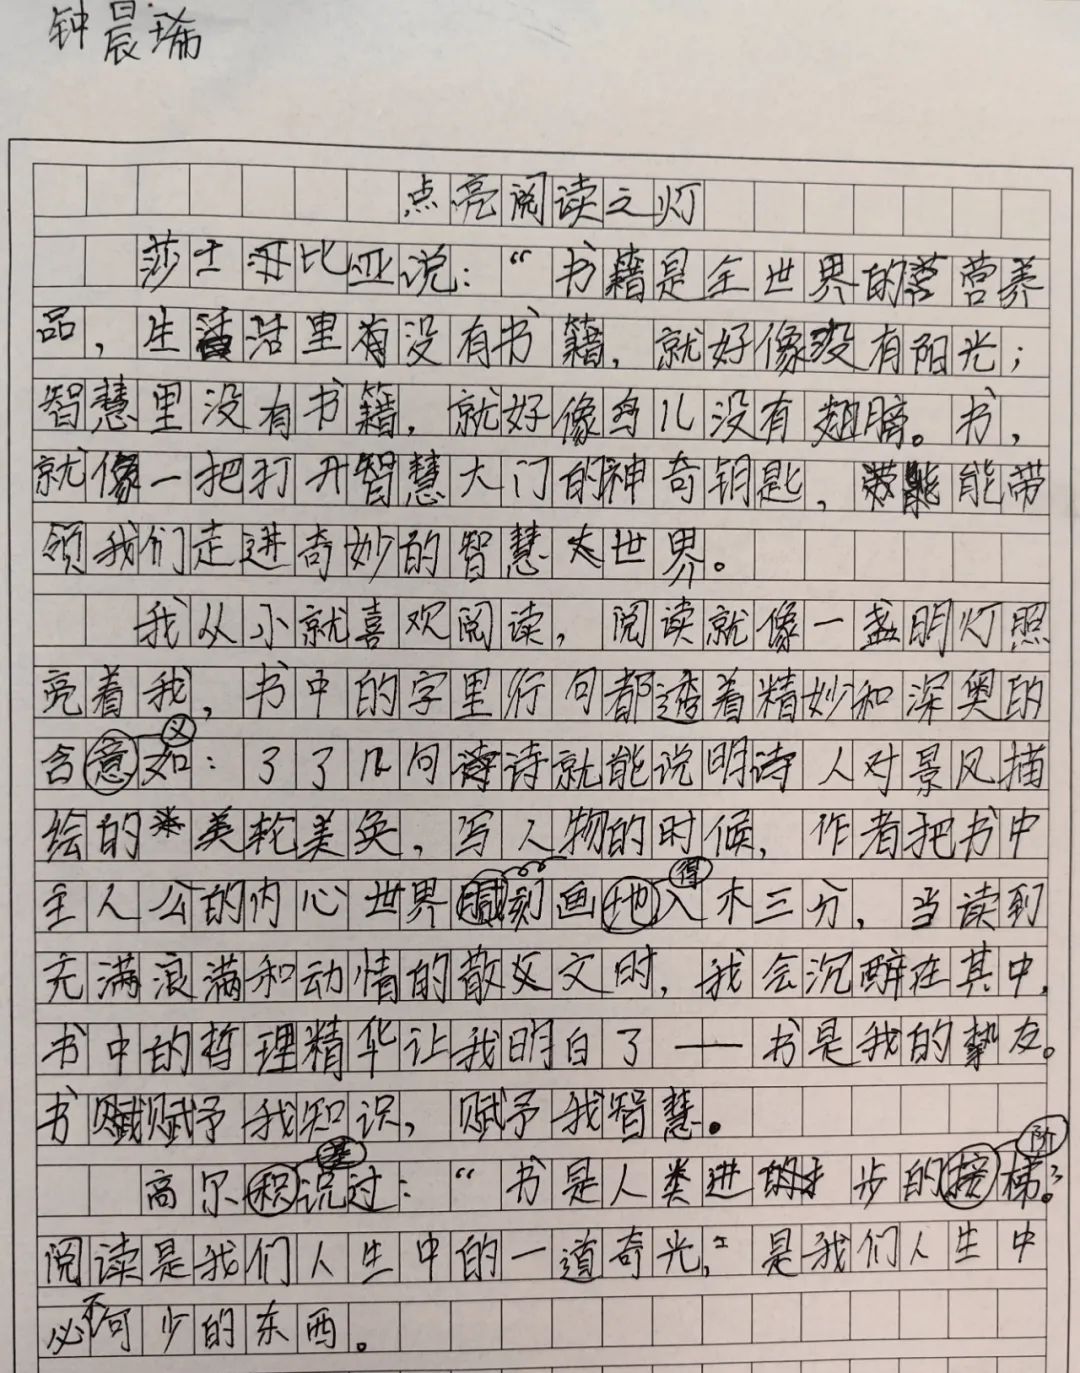 钟晨琋
点亮阅读之灯
莎士比亚说：“书籍是全世界的营养
品，生活里没有书籍，就好像没有阳光；
智慧里没有书籍，就好像鸟儿没有翅膀。书，
就像一把打开智慧大门的神奇钥匙，能带
领我们走进奇妙的智慧大世界。
我从小就喜欢阅读，阅读就像一盏明灯照
亮着我，书中的字里行间都透着精妙和深奥的
义
含意如：了了几句诗就能说明诗人对景风描
绘的美轮美奂，写人物的时候，作者把书中
得
主人公的内心世界刻画地入木三分，当读到
充满浪满和动情的散文时，我会沉醉在其中，
书中的哲理精华让我明白了——书是我的挚友。
书赋予我知识，赋予我智慧。
基 阶
高尔积说过：“书是人类进步的接梯。”
阅读是我们人生中的一道奇光，是我们人生中
不
必可少的东西。